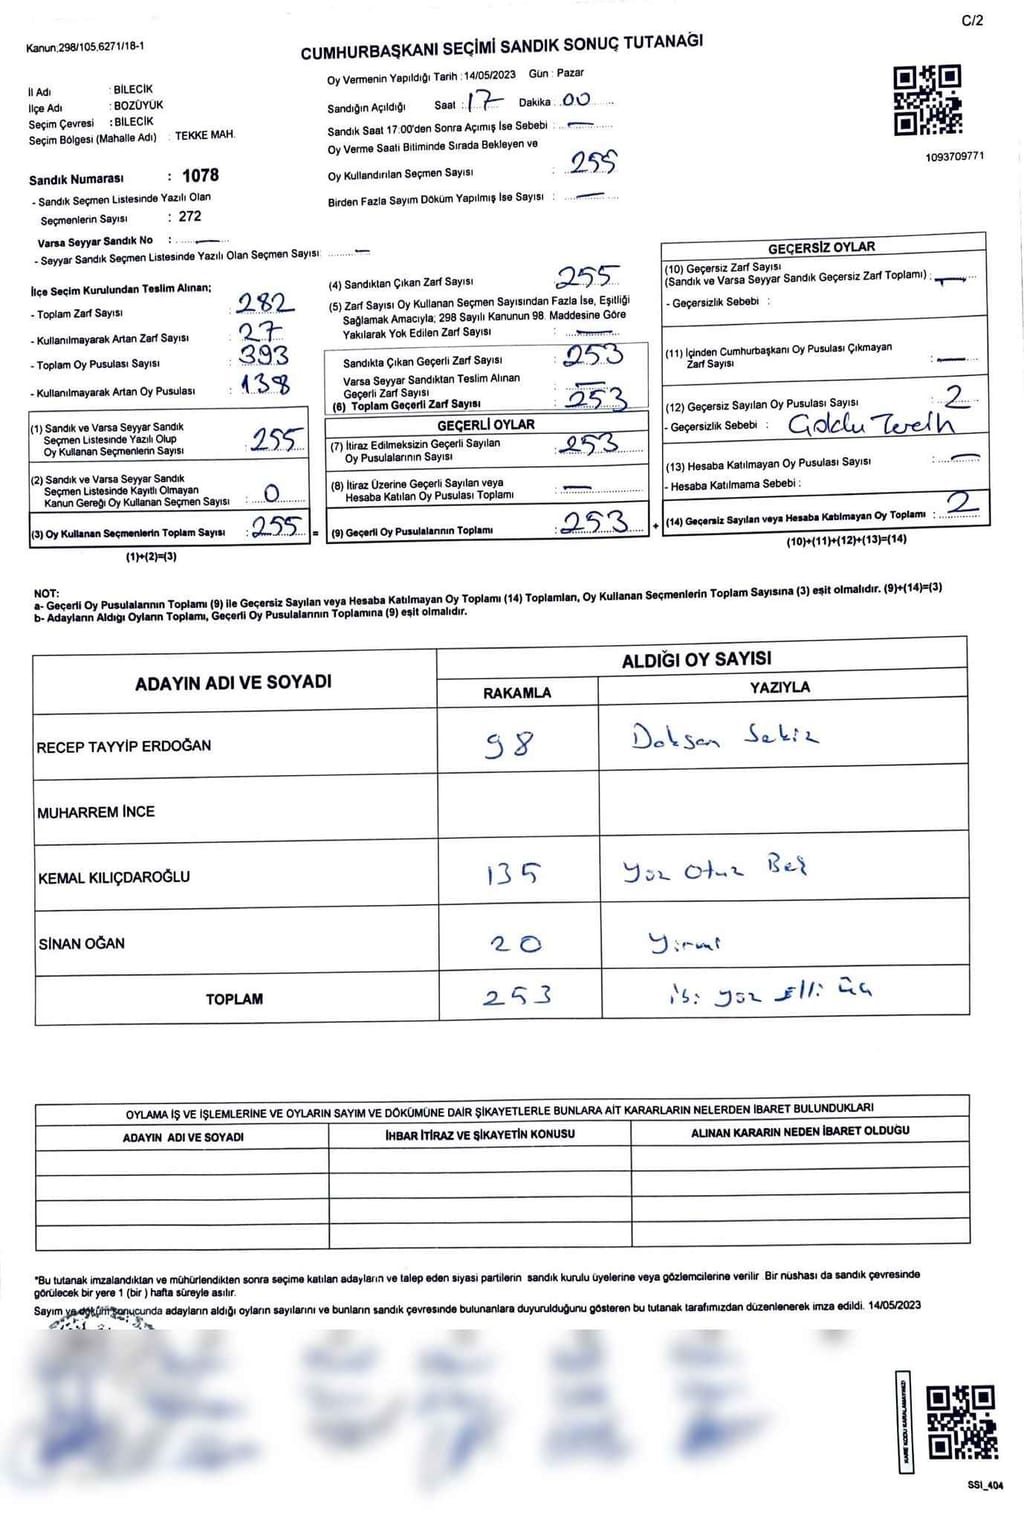 C/2
Kanun;298/105,6271/18-1
CUMHURBAŞKANI SEÇİMİ SANDIK SONUÇ TUTANAĞI
Oy Vermenin Yapıldığı Tarih : 14/05/2023 Gün : Pazar
İl Adı : BİLECİK
İlçe Adı : BOZÜYÜK
Seçim Çevresi : BİLECİK
Seçim Bölgesi (Mahalle Adı) : TEKKE MAH.
Sandığın Açıldığı Saat : 17 Dakika : 00
Sandık Saat 17:00'den Sonra Açımış İse Sebebi : —
Oy Verme Saati Bitiminde Sırada Bekleyen ve
Oy Kullandırılan Seçmen Sayısı : 255
Birden Fazla Sayım Döküm Yapılmış İse Sayısı : —
1093709771
Sandık Numarası : 1078
- Sandık Seçmen Listesinde Yazılı Olan
Seçmenlerin Sayısı : 272
Varsa Seyyar Sandık No : —
- Seyyar Sandık Seçmen Listesinde Yazılı Olan Seçmen Sayısı: —
İlçe Seçim Kurulundan Teslim Alınan;
- Toplam Zarf Sayısı : 282
- Kullanılmayarak Artan Zarf Sayısı : 27
- Toplam Oy Pusulası Sayısı : 393
- Kullanılmayarak Artan Oy Pusulası : 138
(1) Sandık ve Varsa Seyyar Sandık
Seçmen Listesinde Yazılı Olup
Oy Kullanan Seçmenlerin Sayısı : 255
(2) Sandık ve Varsa Seyyar Sandık
Seçmen Listesinde Kayıtlı Olmayan
Kanun Gereği Oy Kullanan Seçmen Sayısı : 0
(3) Oy Kullanan Seçmenlerin Toplam Sayısı : 255 =
(1)+(2)=(3)
(4) Sandıktan Çıkan Zarf Sayısı : 255
(5) Zarf Sayısı Oy Kullanan Seçmen Sayısından Fazla İse, Eşitliği
Sağlamak Amacıyla; 298 Sayılı Kanunun 98. Maddesine Göre
Yakılarak Yok Edilen Zarf Sayısı : —
Sandıkta Çıkan Geçerli Zarf Sayısı : 253
Varsa Seyyar Sandıktan Teslim Alınan
Geçerli Zarf Sayısı : —
(6) Toplam Geçerli Zarf Sayısı : 253
GEÇERLİ OYLAR
(7) İtiraz Edilmeksizin Geçerli Sayılan
Oy Pusulalarının Sayısı : 253
(8) İtiraz Üzerine Geçerli Sayılan veya
Hesaba Katılan Oy Pusulası Toplamı : —
(9) Geçerli Oy Pusulalarının Toplamı : 253 +
GEÇERSİZ OYLAR
(10) Geçersiz Zarf Sayısı
(Sandık ve Varsa Seyyar Sandık Geçersiz Zarf Toplamı) : —
- Geçersizlik Sebebi :
(11) İçinden Cumhurbaşkanı Oy Pusulası Çıkmayan
Zarf Sayısı : —
(12) Geçersiz Sayılan Oy Pusulası Sayısı : 2
- Geçersizlik Sebebi :
(13) Hesaba Katılmayan Oy Pusulası Sayısı : —
- Hesaba Katılmama Sebebi :
(14) Geçersiz Sayılan veya Hesaba Katılmayan Oy Toplamı : 2
(10)+(11)+(12)+(13)=(14)
NOT:
a- Geçerli Oy Pusulalarının Toplamı (9) ile Geçersiz Sayılan veya Hesaba Katılmayan Oy Toplamı (14) Toplamları, Oy Kullanan Seçmenlerin Toplam Sayısına (3) eşit olmalıdır. (9)+(14)=(3)
b- Adayların Aldığı Oyların Toplamı, Geçerli Oy Pusulalarının Toplamına (9) eşit olmalıdır.
ADAYIN ADI VE SOYADI ALDIĞI OY SAYISI
RAKAMLA YAZIYLA
RECEP TAYYİP ERDOĞAN 98 Doksan Sekiz
MUHARREM İNCE
KEMAL KILIÇDAROĞLU 135 Yüz Otuz Beş
SİNAN OĞAN 20 Yirmi
TOPLAM 253 iki yüz Elli üç
OYLAMA İŞ VE İŞLEMLERİNE VE OYLARIN SAYIM VE DÖKÜMÜNE DAİR ŞİKAYETLERLE BUNLARA AİT KARARLARIN NELERDEN İBARET BULUNDUKLARI
ADAYIN ADI VE SOYADI İHBAR İTİRAZ VE ŞİKAYETİN KONUSU ALINAN KARARIN NEDEN İBARET OLDUĞU
*Bu tutanak imzalandıktan ve mühürlendikten sonra seçime katılan adayların ve talep eden siyasi partilerin sandık kurulu üyelerine veya gözlemcilerine verilir. Bir nüshası da sandık çevresinde
görülecek bir yere 1 (bir) hafta süreyle asılır.
Sayım ve döküm sonucunda adayların aldığı oyların sayılarını ve bunların sandık çevresinde bulunanlara duyurulduğunu gösteren bu tutanak tarafımızdan düzenlenerek imza edildi. 14/05/2023
KARE KODU KARALAMAYINIZ!
SSI_404